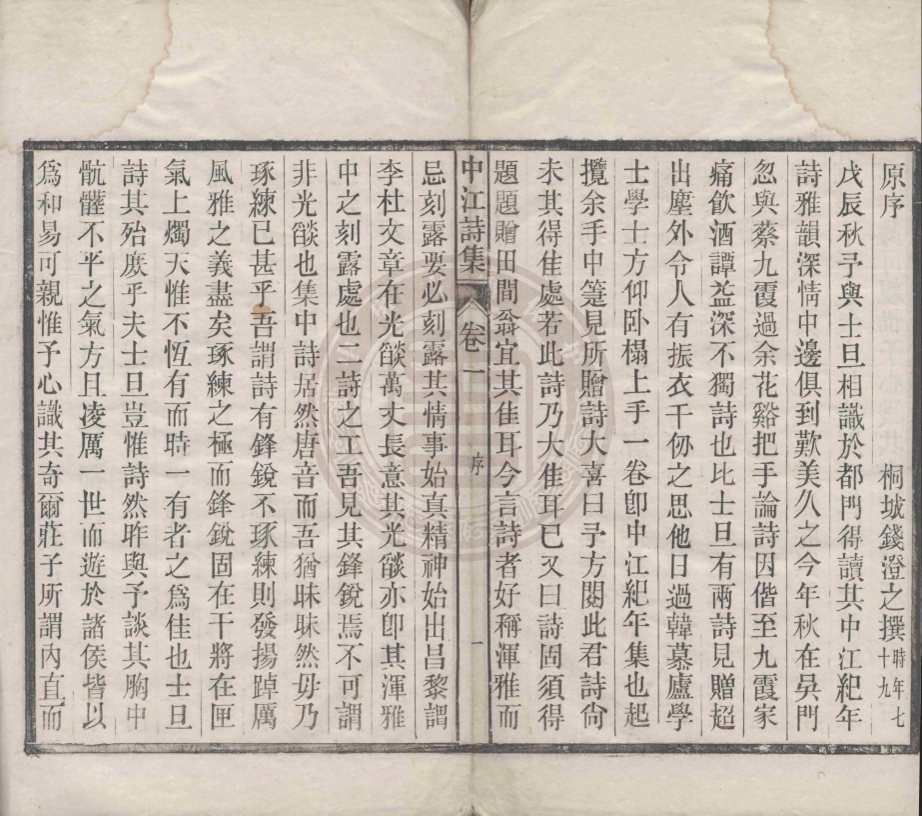 原序
桐城錢澄之撰時年七十九
戊辰秋予與士旦相識於都門得讀其中江紀年
詩雅韻深情中邊俱到歎美久之今年秋在吳門
忽與蔡九霞過余花谿把手論詩因偕至九霞家
痛飲酒譚益深不獨詩也比士旦有兩詩見贈超
出塵外令人有振衣千仞之思他日過韓慕廬學
士學士方仰卧榻上手一卷卽中江紀年集也起
攬余手中箑見所贈詩大喜曰予方閱此君詩尙
未其得佳處若此詩乃大佳耳已又曰詩固須得
題題贈田間翁宜其佳耳今言詩者好稱渾雅而
中江詩集 卷一 序 一
忌刻露要必刻露其情事始真精神始出昌黎謂
李杜文章在光燄萬丈長意其光燄亦卽其渾雅
中之刻露處也二詩之工吾見其鋒銳焉不可謂
非光燄也集中詩居然唐音而吾猶昧昧然毋乃
琢練已甚乎吾謂詩有鋒銳不琢練則發揚踔厲
風雅之義盡矣琢練之極而鋒銳固在干將在匣
氣上燭天惟不恆有而時一有者之爲佳也士旦
詩其殆庶乎夫士旦豈惟詩然昨與予談其胸中
骯髒不平之氣方且凌厲一世而遊於諸侯皆以
爲和易可親惟予心識其奇爾莊子所謂內直而